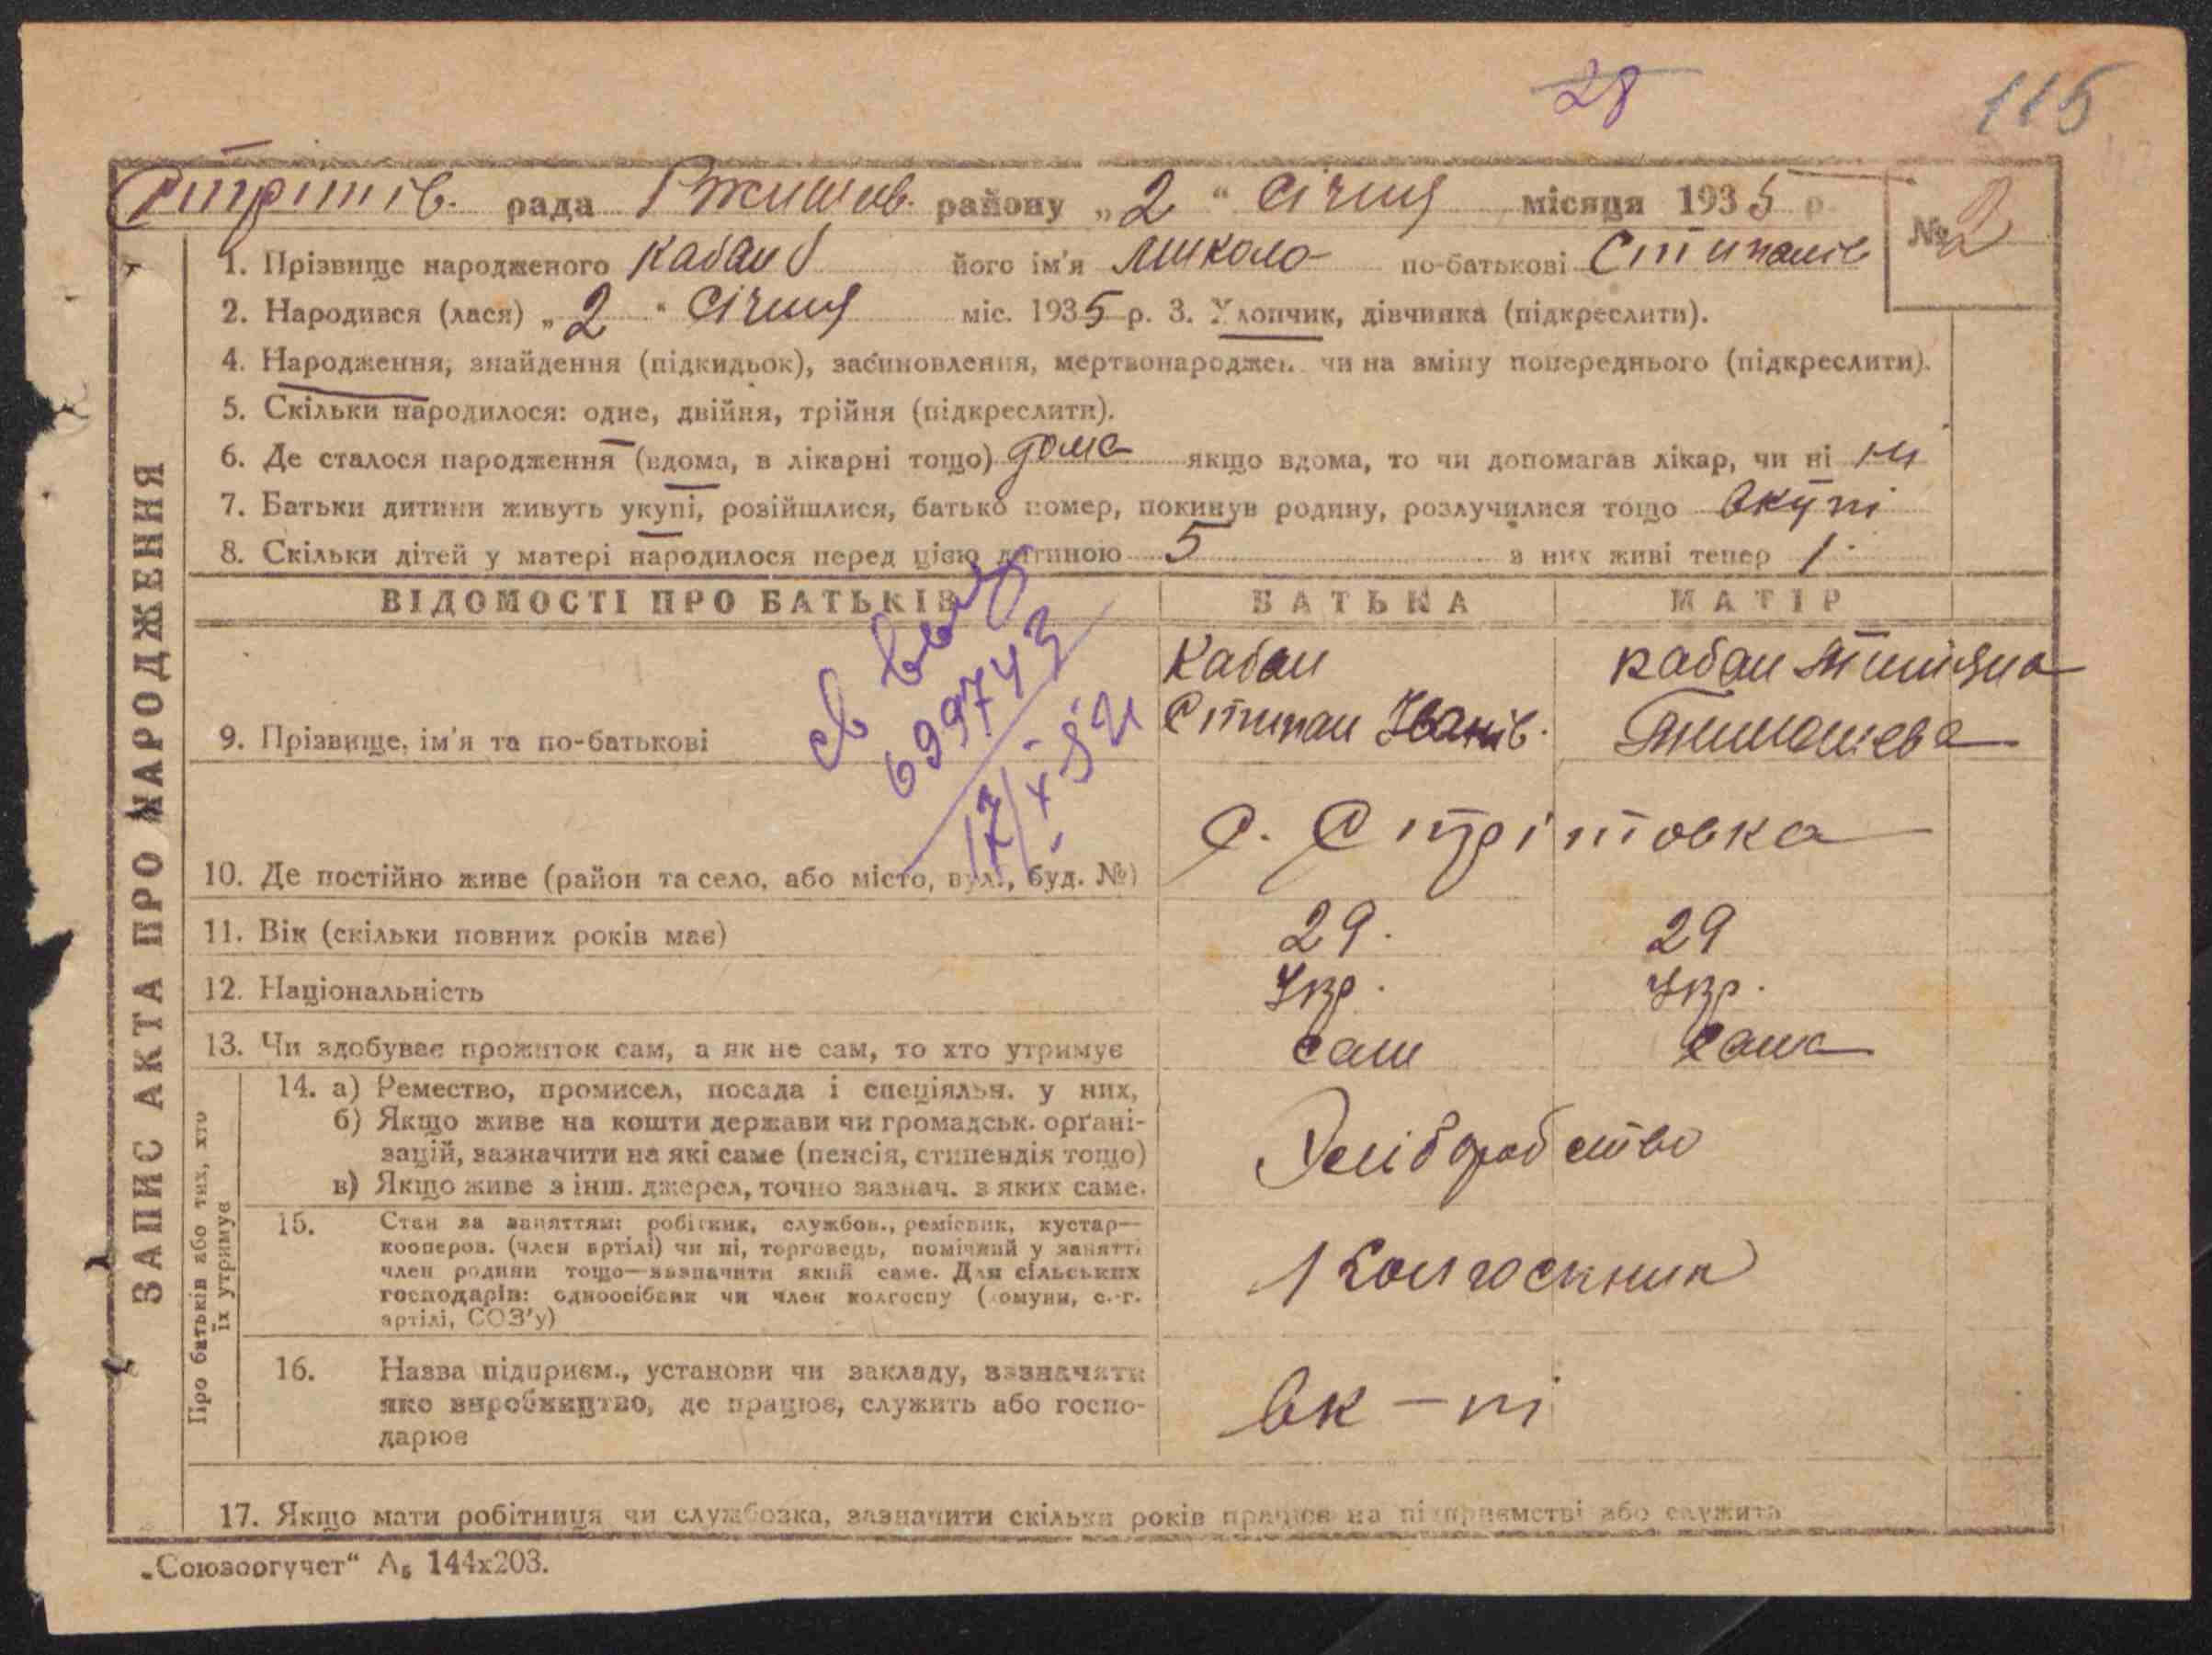 28
115
Стрітів. рада Ржищів. району „2“ Січня місяця 1935 р.
№ 2
1. Прізвище народженого Кабан його ім'я Микола по-батькові Стипанів
2. Народився (лася) „2“ Січня міс. 1935 р. 3. Хлопчик, дівчинка (підкреслити).
4. Народження, знайдення (підкидьок), засиновлення, мертвонароджен. чи на зміну попереднього (підкреслити).
5. Скільки народилося: одне, двійня, трійня (підкреслити).
6. Де сталося народження (вдома, в лікарні тощо) дома якщо вдома, то чи допомагав лікар, чи ні ні
7. Батьки дитини живуть укупі, розійшлися, батько помер, покинув родину, розлучилися тощо вкупі
8. Скільки дітей у матері народилося перед цією дитиною 5 з них живі тепер 1
ВІДОМОСТІ ПРО БАТЬКІВ БАТЬКА МАТІР
9. Прізвище, ім'я та по-батькові
Кабан
Стипан Іванів.
Кабан Титяна
Тимошева
св
699743
10. Де постійно живе (район та село, або місто, вул., буд. №) С. Стрітовка
11. Вік (скільки повних років має) 29. 29
12. Національність Укр. Укр.
13. Чи здобуває прожиток сам, а як не сам, то хто утримує сам сама
14. а) Ремество, промисел, посада і спеціяльн. у них,
б) Якщо живе на кошти держави чи громадськ. орґані-
зацій, зазначити на які саме (пенсія, стипендія тощо)
в) Якщо живе з інш. джерел, точно зазнач. з яких саме.
Хліборобство
15. Стан за заняттям: робітник, службов., ремісник, кустар—
кооперов. (член артілі) чи ні, торговець, помічний у занятті
член родини тощо—зазначити який саме. Для сільських
господарів: одноосібник чи член колгоспу (комуни, с.-г.
артілі, СОЗ'у)
Колгоспник
16. Назва підприєм., установи чи закладу, зазначити
яке виробництво, де працює, служить або госпо-
дарює
вк-пі
17. Якщо мати робітниця чи службовка, зазначити скільки років працює на підприємстві або служить
ЗАПИС АКТА ПРО НАРОДЖЕННЯ
Про батьків або тих, хто
їх утримує
„Союзоргучет“ А₅ 144х203.